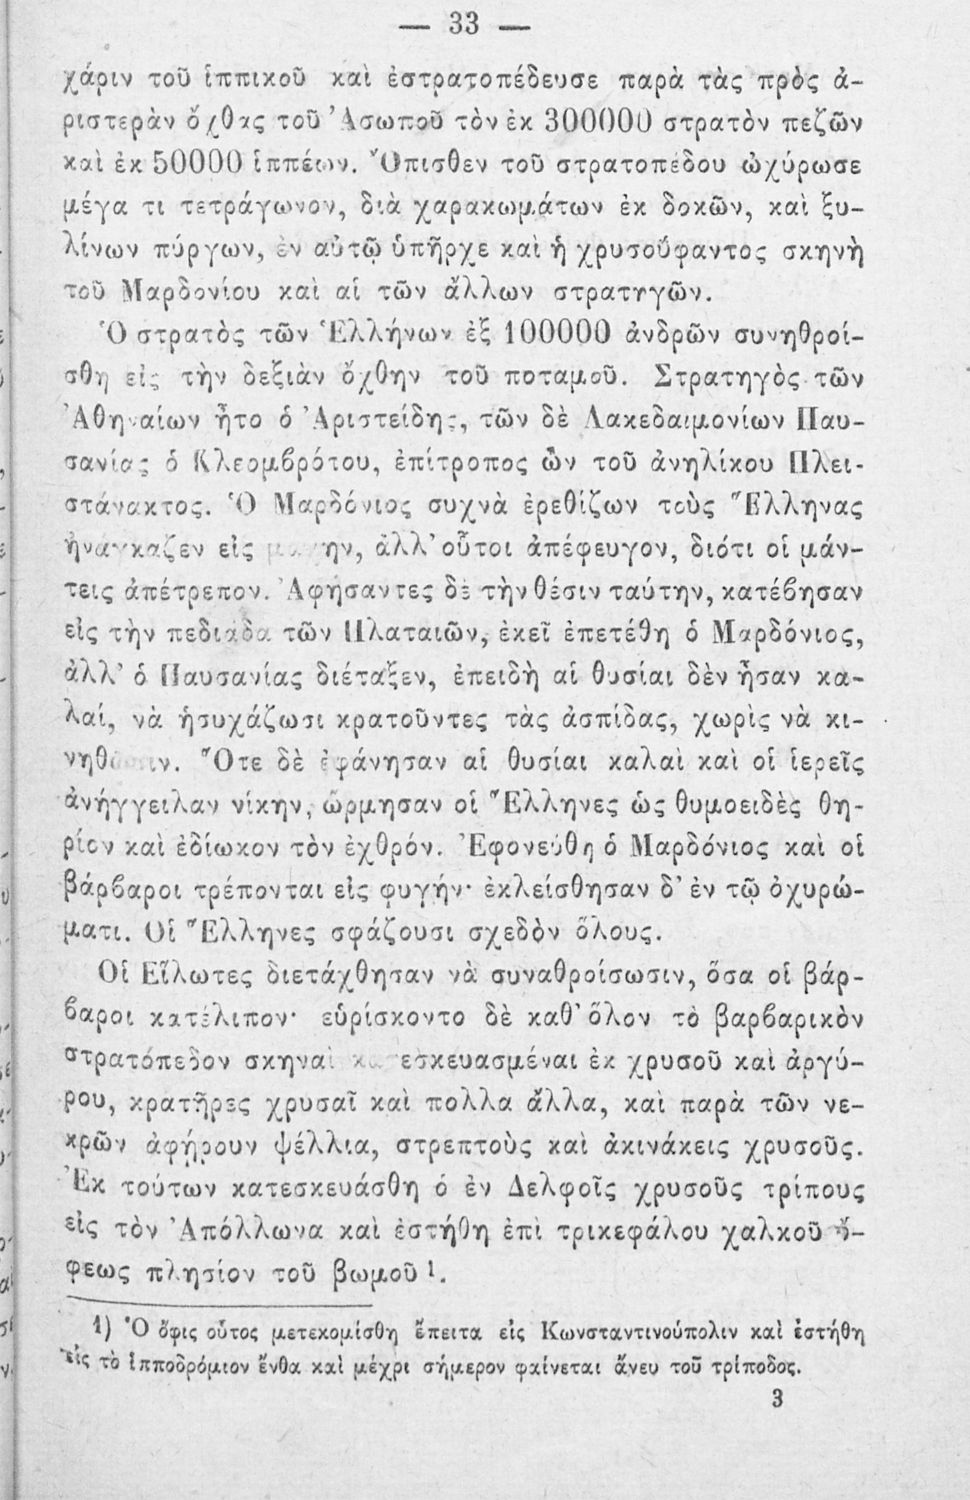 — 33 —
χάριν τοῦ ἱππικοῦ καὶ ἐστρατοπέδευσε παρὰ τὰς πρὸς ἀ-
ριστερὰν ὄχθας τοῦ Ἀσωποῦ τὸν ἐκ 300000 στρατὸν πεζῶν
καὶ ἐκ 50000 ἱππέων. Ὄπισθεν τοῦ στρατοπέδου ὠχύρωσε
μέγα τι τετράγωνον, διὰ χαρακωμάτων ἐκ δοκῶν, καὶ ξυ-
λίνων πύργων, ἐν αὐτῷ ὑπῆρχε καὶ ἡ χρυσοΰφαντος σκηνὴ
τοῦ Μαρδονίου καὶ αἱ τῶν ἄλλων στρατηγῶν.
Ὁ στρατὸς τῶν Ἑλλήνων ἐξ 100000 ἀνδρῶν συνηθροί-
σθη εἰς τὴν δεξιὰν ὄχθην τοῦ ποταμοῦ. Στρατηγὸς τῶν
Ἀθηναίων ἦτο ὁ Ἀριστείδης, τῶν δὲ Λακεδαιμονίων Παυ-
σανίας ὁ Κλεομβρότου, ἐπίτροπος ὢν τοῦ ἀνηλίκου Πλει-
στάνακτος. Ὁ Μαρδόνιος συχνὰ ἐρεθίζων τοὺς Ἕλληνας
ἠνάγκαζεν εἰς μάχην, ἀλλ’ οὗτοι ἀπέφευγον, διότι οἱ μάν-
τεις ἀπέτρεπον. Ἀφήσαντες δὲ τὴν θέσιν ταύτην, κατέβησαν
εἰς τὴν πεδιάδα τῶν Πλαταιῶν, ἐκεῖ ἐπετέθη ὁ Μαρδόνιος,
ἀλλ’ ὁ Παυσανίας διέταξεν, ἐπειδὴ αἱ θυσίαι δὲν ἦσαν κα-
λαί, νὰ ἡσυχάζωσι κρατοῦντες τὰς ἀσπίδας, χωρὶς νὰ κι-
νηθῶσιν. Ὅτε δὲ ἐφάνησαν αἱ θυσίαι καλαὶ καὶ οἱ ἱερεῖς
ἀνήγγειλαν νίκην, ὥρμησαν οἱ Ἕλληνες ὡς θυμοειδὲς θη-
ρίον καὶ ἐδίωκον τὸν ἐχθρόν. Ἐφονεύθη ὁ Μαρδόνιος καὶ οἱ
βάρβαροι τρέπονται εἰς φυγήν· ἐκλείσθησαν δ’ ἐν τῷ ὀχυρώ-
ματι. Οἱ Ἕλληνες σφάζουσι σχεδὸν ὅλους.
Οἱ Εἵλωτες διετάχθησαν νὰ συναθροίσωσιν, ὅσα οἱ βάρ-
βαροι κατέλιπον· εὑρίσκοντο δὲ καθ’ ὅλον τὸ βαρβαρικὸν
στρατόπεδον σκηναὶ κατεσκευασμέναι ἐκ χρυσοῦ καὶ ἀργύ-
ρου, κρατῆρες χρυσαῖ καὶ πολλα ἄλλα, καὶ παρὰ τῶν νε-
κρῶν ἀφῄρουν ψέλλια, στρεπτοὺς καὶ ἀκινάκεις χρυσοῦς.
Ἐκ τούτων κατεσκευάσθη ὁ ἐν Δελφοῖς χρυσοῦς τρίπους
εἰς τὸν Ἀπόλλωνα καὶ ἐστήθη ἐπὶ τρικεφάλου χαλκοῦ ὄ-
φεως πλησίον τοῦ βωμοῦ 1.
1) Ὁ ὄφις οὗτος μετεκομίσθη ἔπειτα εἰς Κωνσταντινούπολιν καὶ ἐστήθη
εἰς τὸ ἱπποδρόμιον ἔνθα καὶ μέχρι σήμερον φαίνεται ἄνευ τοῦ τρίποδος.
3